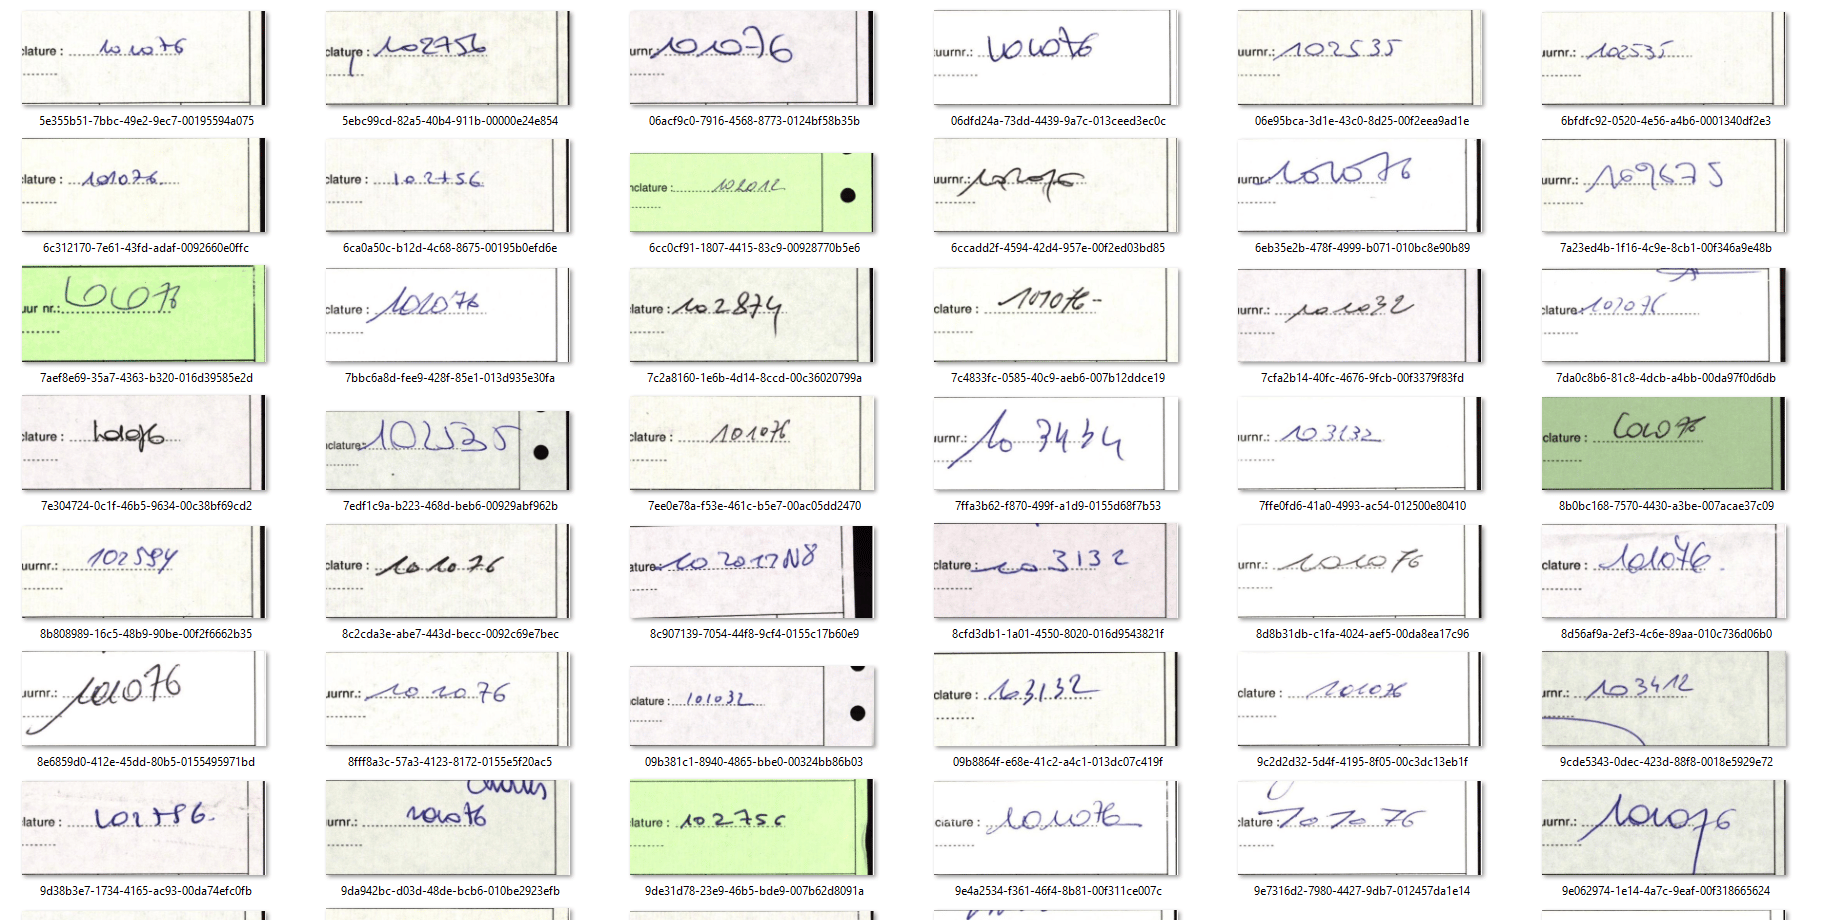 clature : 101076
clature : 102756
urnr. 101076
uurnr.: 101076
uurnr.: 102535
uurnr.: 102535
5e355b51-7bbc-49e2-9ec7-00195594a075
5ebc99cd-82a5-40b4-911b-00000e24e854
06acf9c0-7916-4568-8773-0124bf58b35b
06dfd24a-73dd-4439-9a7c-013ceed3ec0c
06e95bca-3d1e-43c0-8d25-00f2eea9ad1e
6bfdfc92-0520-4e56-a4b6-0001340df2e3
lature : 101076
clature : 102756
nclature : 102012
uurnr.: 101076
uurnr. 101076
uurnr.: 169675
6c312170-7e61-43fd-adaf-0092660e0ffc
6ca0a50c-b12d-4c68-8675-00195b0efd6e
6cc0cf91-1807-4415-83c9-00928770b5e6
6ccadd2f-4594-42d4-957e-00f2ed03bd85
6eb35e2b-478f-4999-b071-010bc8e90b89
7a23ed4b-1f16-4c9e-8cb1-00f346a9e48b
uur nr.: 101076
clature : 101076
clature : 102874
clature : 101076-
urnr.: 101032
clature: 101076
7aef8e69-35a7-4363-b320-016d39585e2d
7bbc6a8d-fee9-428f-85e1-013d935e30fa
7c2a8160-1e6b-4d14-8ccd-00c36020799a
7c4833fc-0585-40c9-aeb6-007b12ddce19
7cfa2b14-40fc-4676-9fcb-00f3379f83fd
7da0c8b6-81c8-4dcb-a4bb-00da97f0d6db
clature : 101076
clature: 102535
clature : 101076
uurnr.: 103434
urnr.: 103132
clature : 101076
7e304724-0c1f-46b5-9634-00c38bf69cd2
7edf1c9a-b223-468d-beb6-00929abf962b
7ee0e78a-f53e-461c-b5e7-00ac05dd2470
7ffa3b62-f870-499f-a1d9-0155d68f7b53
7ffe0fd6-41a0-4993-ac54-012500e80410
8b0bc168-7570-4430-a3be-007acae37c09
uurnr.: 102594
clature : 101076
ature: 102012N8
clature : 103132
urnr.: 101076
clature : 101076.
8b808989-16c5-48b9-90be-00f2f6662b35
8c2cda3e-abe7-443d-becc-0092c69e7bec
8c907139-7054-44f8-9cf4-0155c17b60e9
8cfd3db1-1a01-4550-8020-016d9543821f
8d8b31db-c1fa-4024-aef5-00da8ea17c96
8d56af9a-2ef3-4c6e-89aa-010c736d06b0
uurnr.: 101076
uurnr.: 101076
clature : 101032
clature : 103132
clature : 101076
urnr.: 103412
8e6859d0-412e-45dd-80b5-0155495971bd
8fff8a3c-57a3-4123-8172-0155e5f20ac5
09b381c1-8940-4865-bbe0-00324bb86b03
09b8864f-e68e-41c2-a4c1-013dc07c419f
9c2d2d32-5d4f-4195-8f05-00c3dc13eb1f
9cde5343-0dec-423d-88f8-0018e5929e72
lature : 102786.
urnr.: 101076
lature : 102756
clature : 101076
clature : 101076
uurnr.: 101076
9d38b3e7-1734-4165-ac93-00da74efc0fb
9da942bc-d03d-48de-bcb6-010be2923efb
9de31d78-23e9-46b5-bde9-007b62d8091a
9e4a2534-f361-46f4-8b81-00f311ce007c
9e7316d2-7980-4427-9db7-012457da1e14
9e062974-1e14-4a7c-9eaf-00f318665624